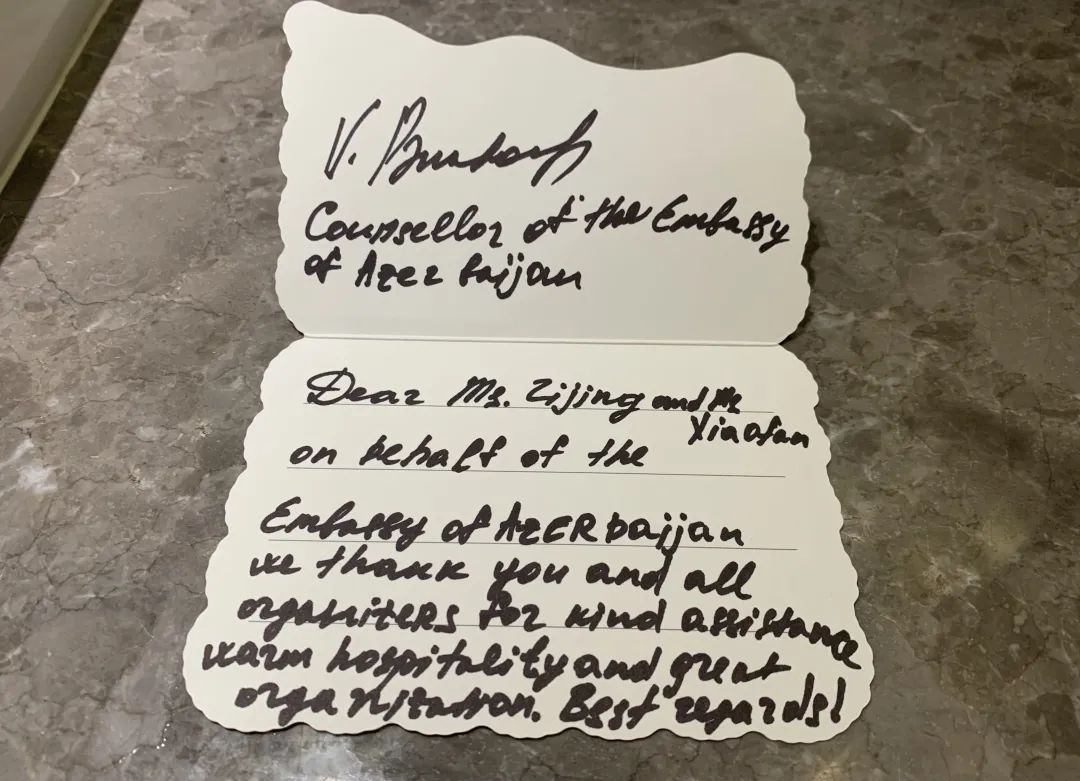 V.
Counsellor of the Embassy
of Azerbaijan
Dear Ms. Zijing and Mr
Xiaofan
on behalf of the
Embassy of AzERbaijan
we thank you and all
organizers for kind assistance
warm hospitality and great
organization. Best regards!